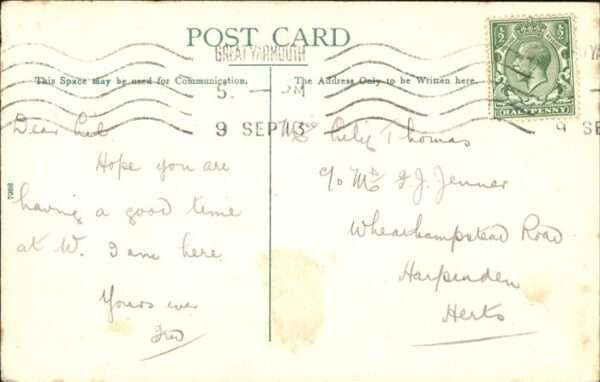 POST CARD
GREAT YARMOUTH
This Space may be used for Communication.
The Address Only to be Written here.
5. — PM
9 SEP 13
9 SE
½ ½
HALFPENNY
7988
Dear
Hope you are
having a good time
at W. I am here.
Yours ever
Fred
Thomas
c/o Mrs J. J. Jenner
Wheathampstead Road
Harpenden
Herts